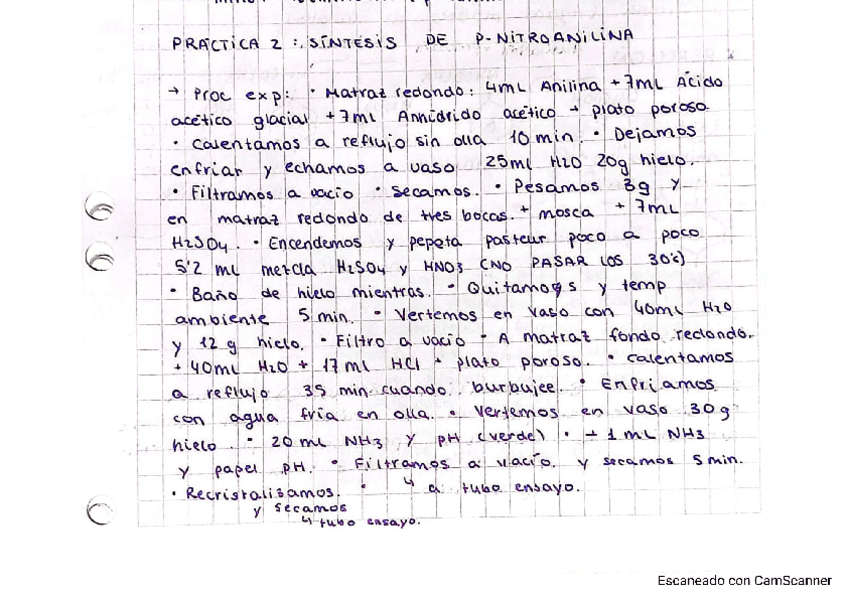 PRACTICA 2 : SÍNTESIS DE P-NITROANILINA
→ Proc exp: · Matraz redondo: 4mL Anilina + 7mL Ácido
acético glacial + 7ml Anhídrido acético + plato poroso
· Calentamos a reflujo sin olla 10 min. · Dejamos
enfriar y echamos a vaso 25ml H2O 20g hielo.
· Filtramos a vacio · Secamos. · Pesamos 3g y
en matraz redondo de tres bocas. + mosca + 7mL
H2SO4. · Encendemos y pepeta pasteur poco a poco
5'2 ml mezcla H2SO4 y HNO3 (NO PASAR LOS 30ºC)
· Baño de hielo mientras. · Quitamos y temp
ambiente 5 min. · Vertemos en vaso con 40ml H2O
y 12 g hielo. · Filtro a vacío · A matraz fondo redondo.
+ 40ml H2O + 17 ml HCl + plato poroso. · Calentamos
a reflujo 35 min cuando burbujee. · Enfriamos
con agua fría en olla. · Vertemos en vaso 30g
hielo. · 20 mL NH3 y pH (verde) · + 1 mL NH3
y papel pH. · Filtramos a vacío. y secamos 5 min.
· Recristalizamos. · ↳ a tubo ensayo.
y secamos
↳ tubo ensayo.
Escaneado con CamScanner